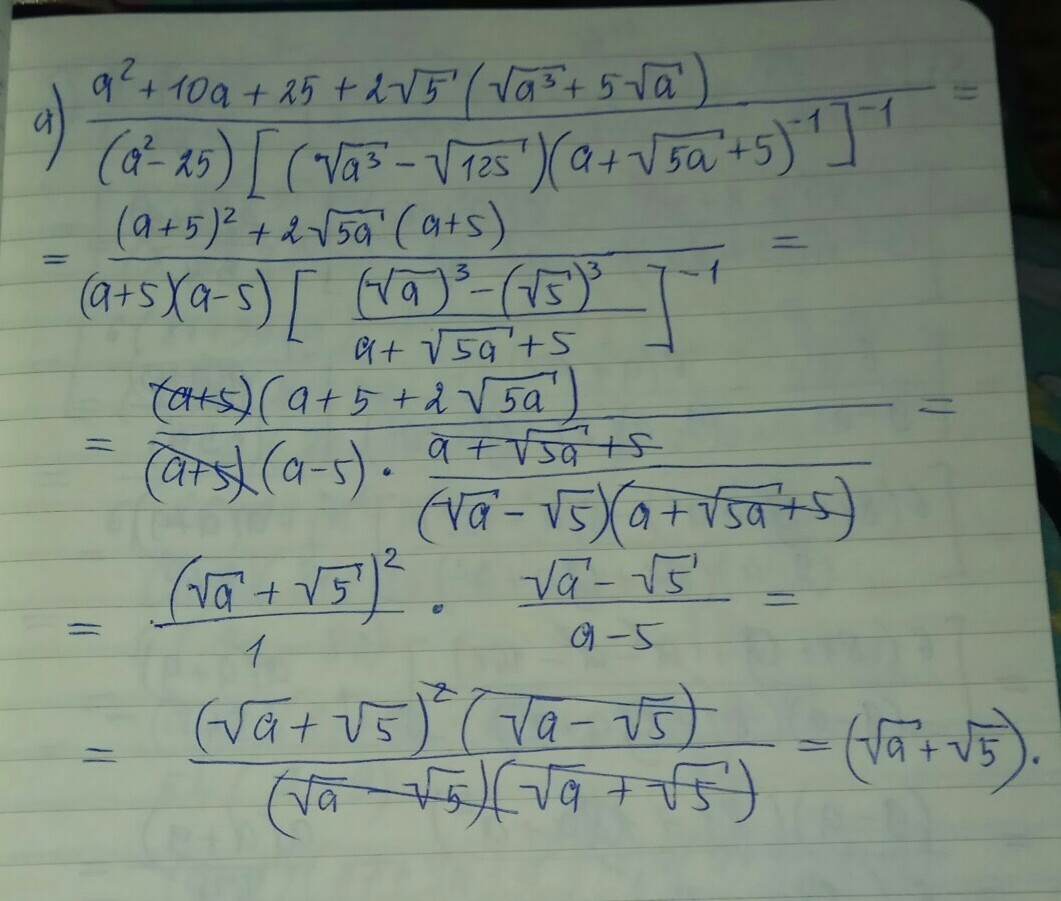 a) (a² + 10a + 25 + 2√5 (√a³ + 5√a)) / ((a² - 25) [(√a³ - √125)(a + √5a + 5)⁻¹]⁻¹) =
= ((a+5)² + 2√5a (a+5)) / ((a+5)(a-5) [((√a)³ - (√5)³) / (a + √5a + 5)]⁻¹) =
= ((a+5)(a + 5 + 2√5a)) / ((a+5)(a-5) · (a + √5a + 5) / ((√a - √5)(a + √5a + 5))) =
= (√a + √5)² / 1 · (√a - √5) / (a - 5) =
= ((√a + √5)² (√a - √5)) / ((√a - √5)(√a + √5)) = (√a + √5).